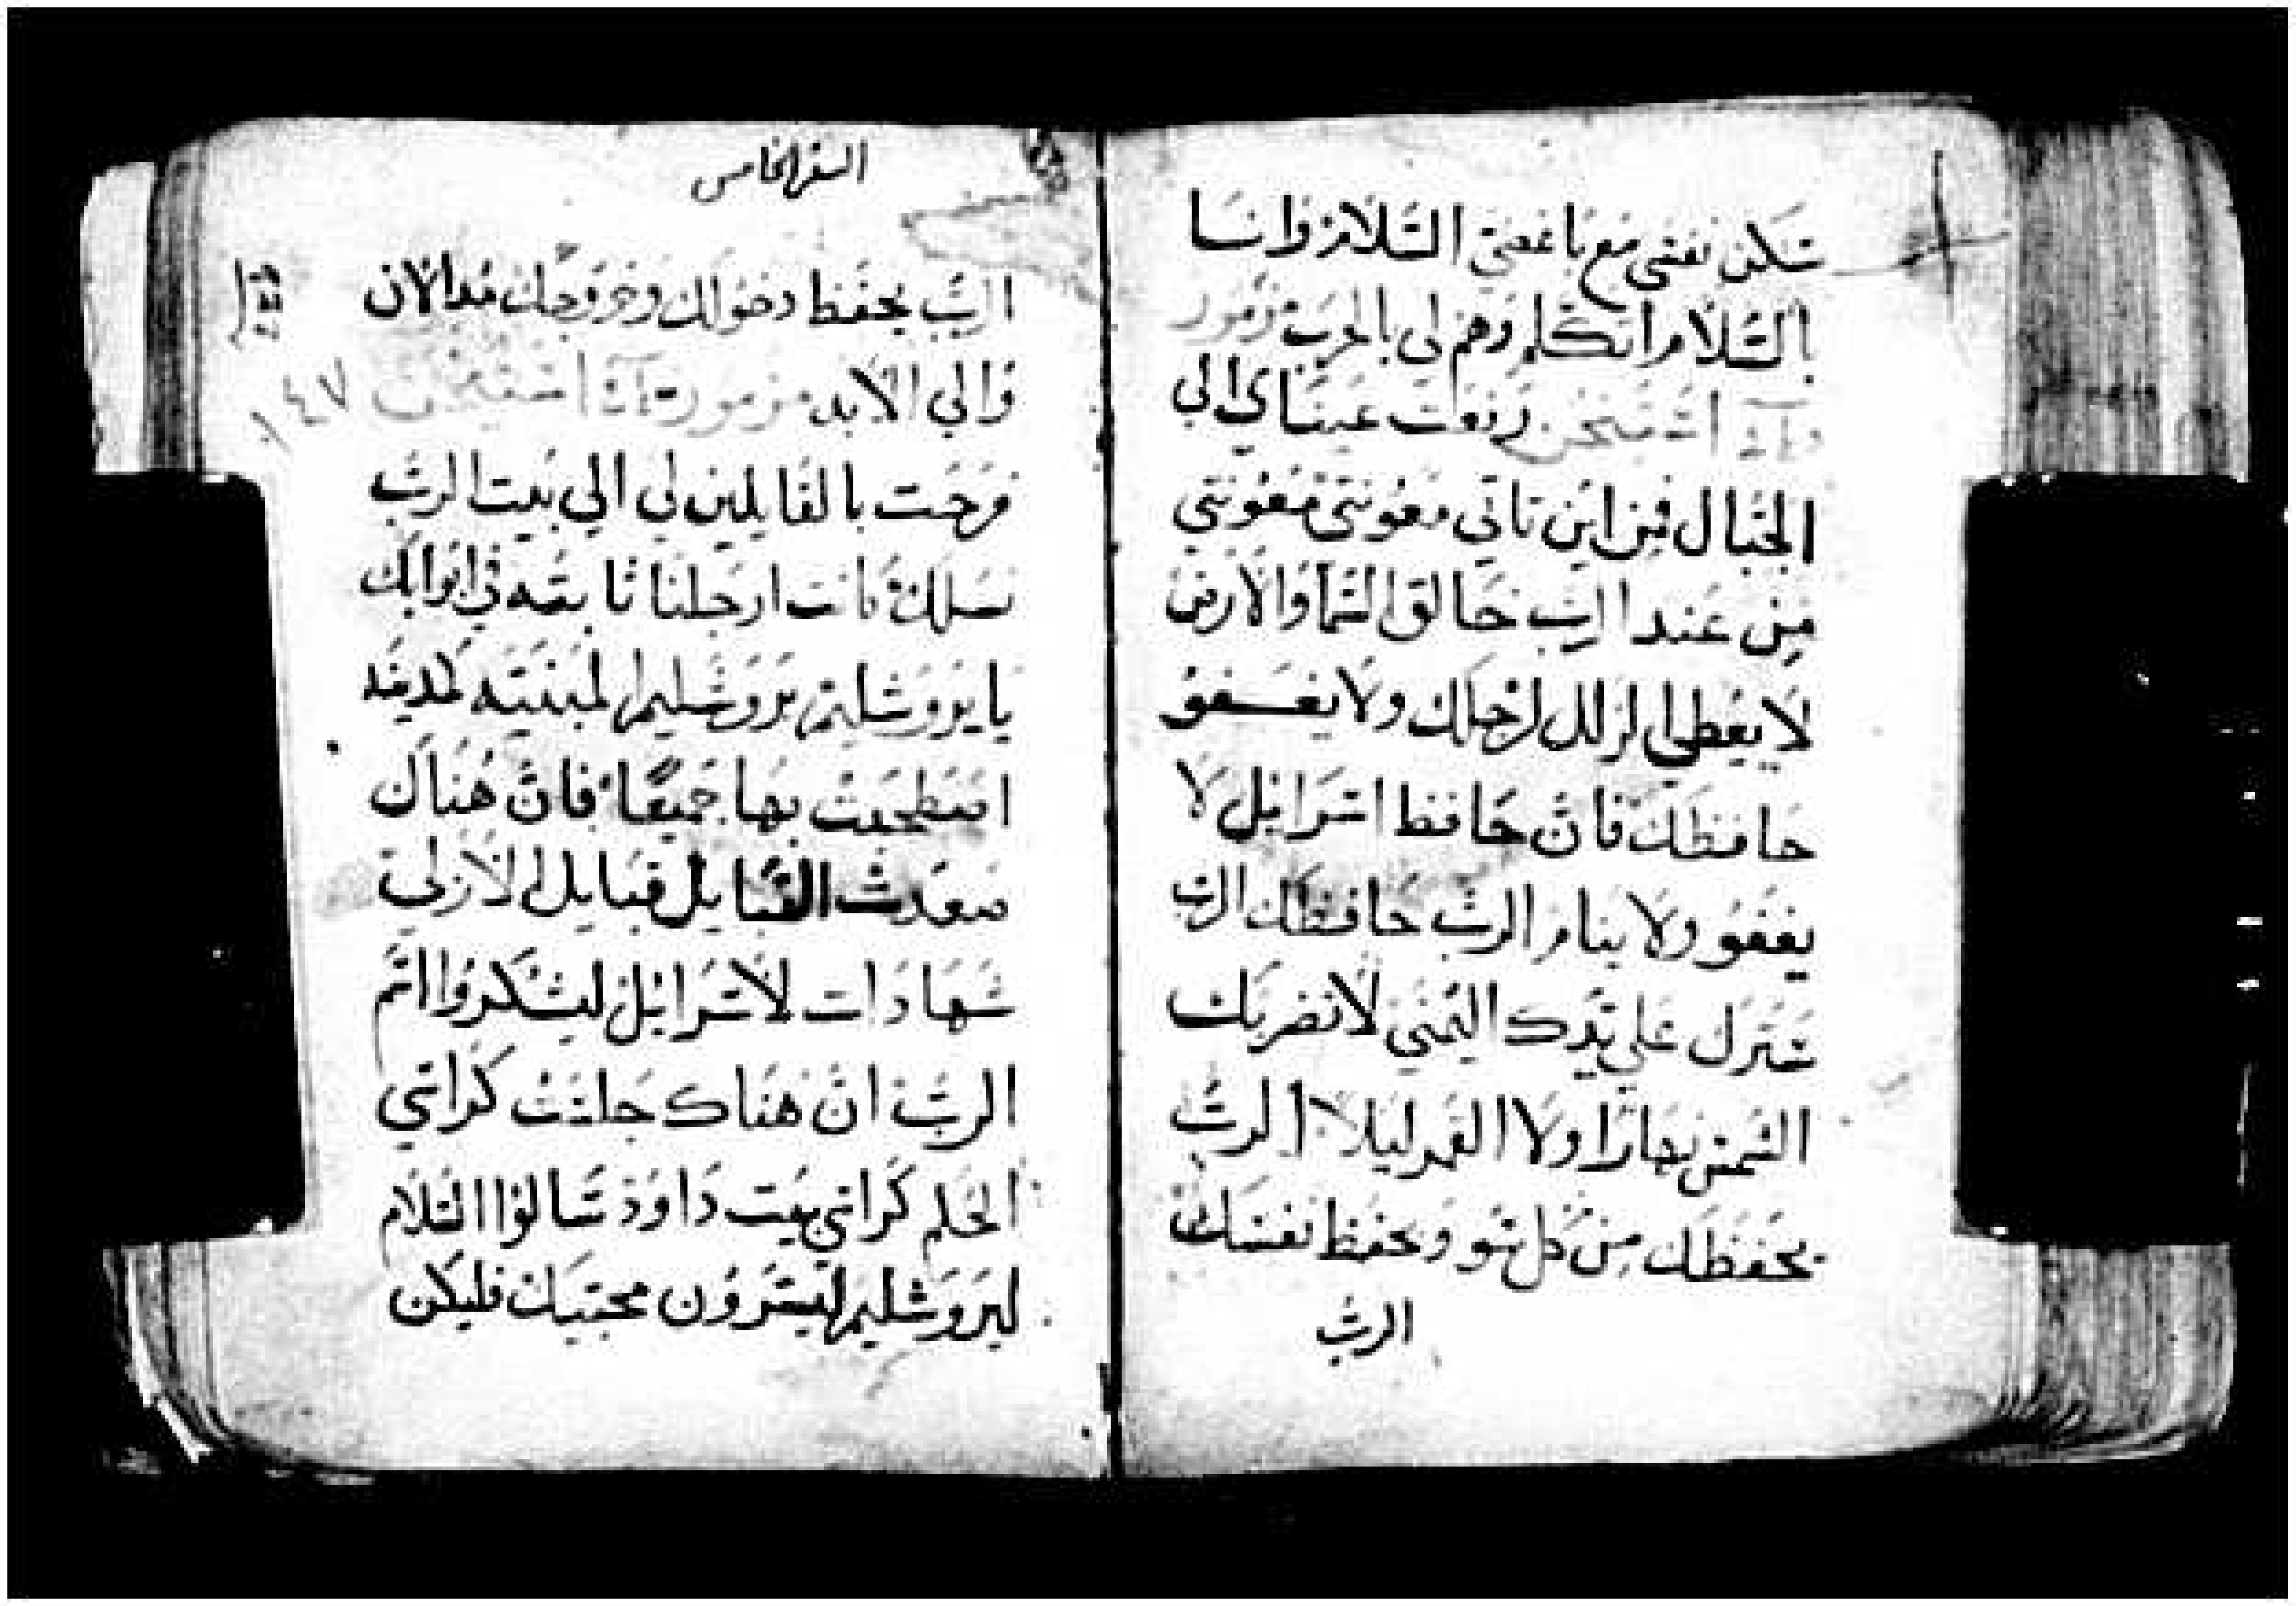 تسكن نفسي مع باغضي السلام وانا
بالسلام اتكلم وهم لي بالحرب مزمور
رفعت عيناي الي
الجبال من اين تاتي معونتي معونتي
من عند الرب خالق السما والارض
لا يعطي لزلل لرجلك ولا يغفو
حافظك فان حافظ اسرايل لا
يغفو ولا ينام الرب حافظك الرب
سترك علي يدك اليمني لا تضربك
الشمس نهارا ولا القمر ليلا الرب
يحفظك من كل سو ويحفظ نفسك
الرب
السفر الخامس
الرب يحفظ دخولك وخروجك مدالان
والي الابد مزمور
١٤٧
فرحت بالقايلين لي الي بيت الرب
نسلك كانت ارجلنا ثابته في ابوابك
يا يروشليم يروشليم لمبنيه لمدينه
اصطحبت بها جميعا فان هناك
صعدت القبايل قبايل لازلية
شهادات لاسرايل ليشكروا اسم
الرب ان هناك جلست كراسي
الحكم كراسي بيت داود سالوا السلام
ليروشليم ليسرون محبيك فليكن